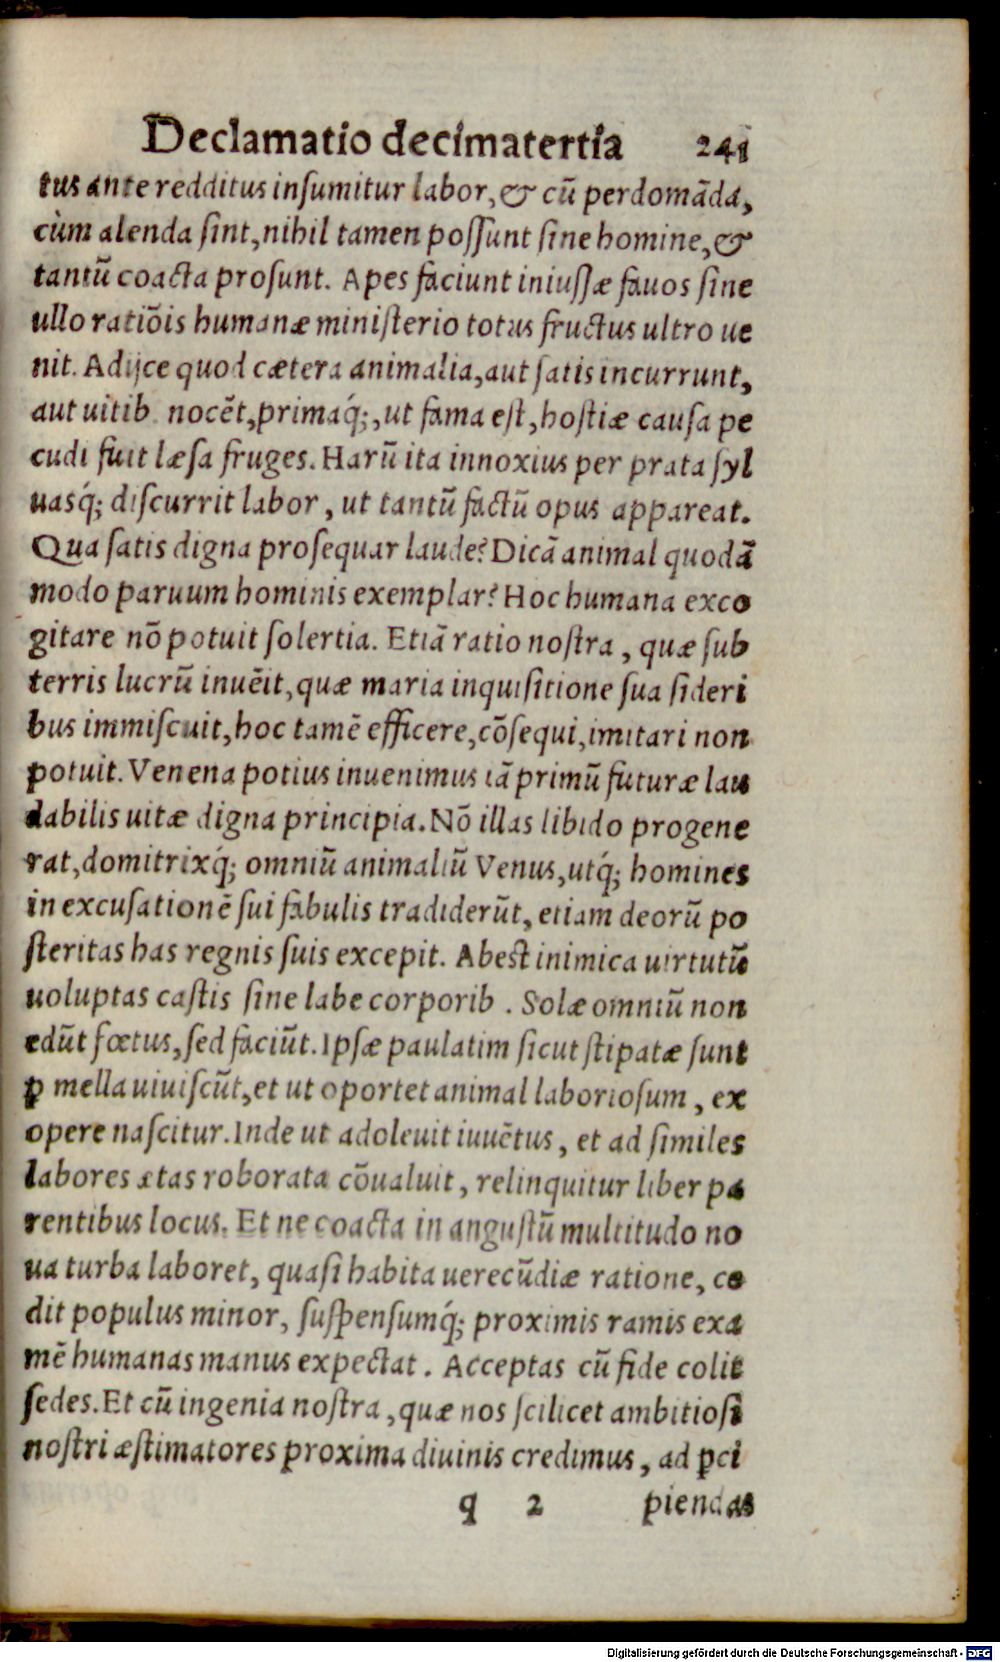 Declamatio decimatertia 241
tus ante redditus insumitur labor, & cũ perdomãda,
cùm alenda sint, nihil tamen possunt sine homine, &
tantũ coacta prosunt. Apes faciunt iniussæ fauos sine
ullo ratiõis humanæ ministerio totus fructus ultro ue
nit. Adijce quod cætera animalia, aut satis incurrunt,
aut uitib. nocẽt, primaq́;, ut fama est, hostiæ causa pe
cudi fuit læsa fruges. Harũ ita innoxius per prata syl
uasq́; discurrit labor, ut tantũ factũ opus appareat.
Qua satis digna prosequar laude? Dicã animal quodã
modo paruum hominis exemplar? Hoc humana exco
gitare nõ potuit solertia. Etiã ratio nostra, quæ sub
terris lucrũ inuẽit, quæ maria inquisitione sua sideri
bus immiscuit, hoc tamẽ efficere, cõsequi, imitari non
potuit. Venena potius inuenimus iã primũ futuræ lau
dabilis uitæ digna principia. Nõ illas libido progene
rat, domitrixq́; omniũ animaliũ Venus, utq́; homines
in excusationẽ sui fabulis tradiderũt, etiam deorũ po
steritas has regnis suis excepit. Abest inimica uirtutũ
uoluptas castis sine labe corporib. Solæ omniũ non
edũt fœtus, sed faciũt. Ipsæ paulatim sicut stipatæ sunt
ꝑ mella uiuiscũt, et ut oportet animal laboriosum, ex
opere nascitur. Inde ut adoleuit iuuẽtus, et ad similes
labores ætas roborata cõualuit, relinquitur liber pa
rentibus locus. Et ne coacta in angustũ multitudo no
ua turba laboret, quasi habita uerecũdiæ ratione, ce
dit populus minor, suspensumq́; proximis ramis exa
mẽ humanas manus expectat. Acceptas cũ fide colit
sedes. Et cũ ingenia nostra, quæ nos scilicet ambitiosi
nostri æstimatores proxima diuinis credimus, ad ꝑci
q 2 piendas
Digitalisierung gefördert durch die Deutsche Forschungsgemeinschaft - DFG